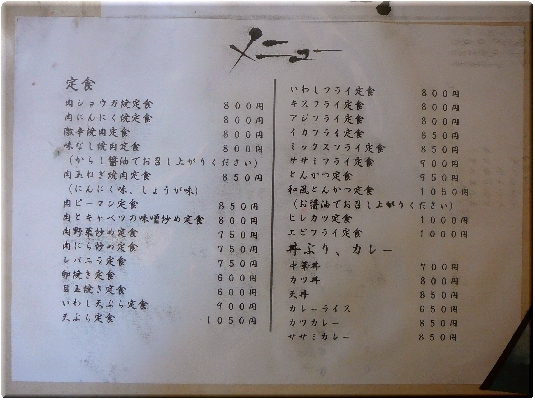 メニュー
定食
肉ショウガ焼定食 800円
肉にんにく焼定食 800円
激辛焼肉定食 800円
味なし焼肉定食 800円
(からし醤油でお召し上がりください)
肉玉ねぎ焼肉定食 850円
(にんにく味、しょうが味)
肉ピーマン定食 850円
肉とキャベツの味噌炒め定食 800円
肉野菜炒め定食 750円
肉にら炒め定食 750円
レバニラ定食 750円
卵焼き定食 600円
目玉焼き定食 600円
いわし天ぷら定食 900円
天ぷら定食 1050円
いわしフライ定食 800円
キスフライ定食 800円
アジフライ定食 800円
イカフライ定食 850円
ミックスフライ定食 850円
ササミフライ定食 900円
とんかつ定食 950円
和風とんかつ定食 1050円
(お醤油でお召し上がりください)
ヒレカツ定食 1000円
エビフライ定食 1000円
丼ぶり、カレー
中華丼 700円
カツ丼 800円
天丼 850円
カレーライス 650円
カツカレー 850円
ササミカレー 850円